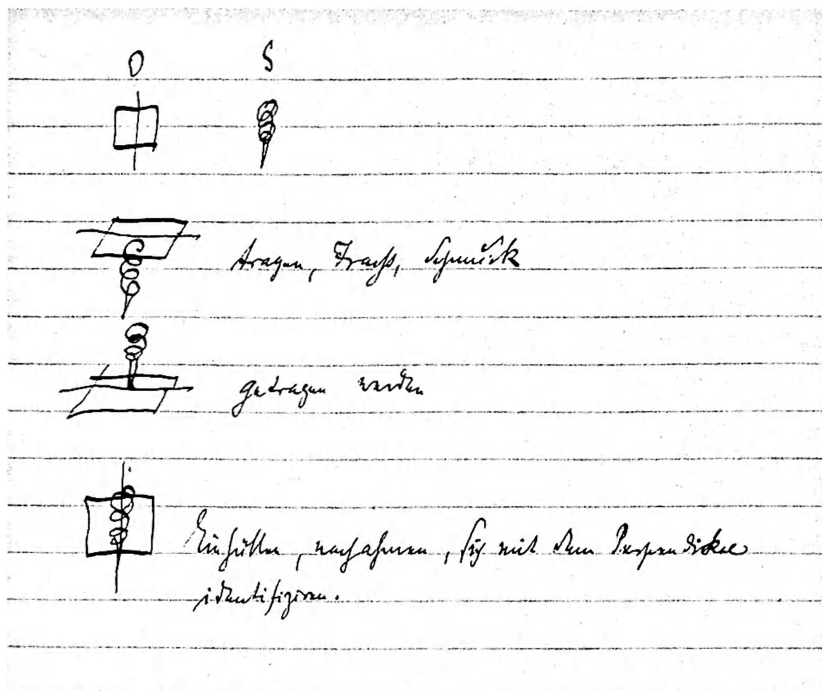 O S
tragen, Tracht, Schmuck
getragen werden
Einhüllen, nachahmen, sich mit dem Perpendickel
identifiziren.